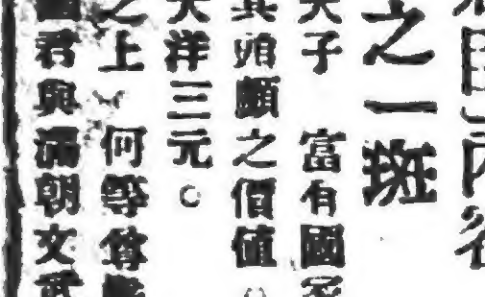 內
之一斑
天子 富有國
其頭顱之價值
大洋三元。
之上 何等
國君與滿朝文武